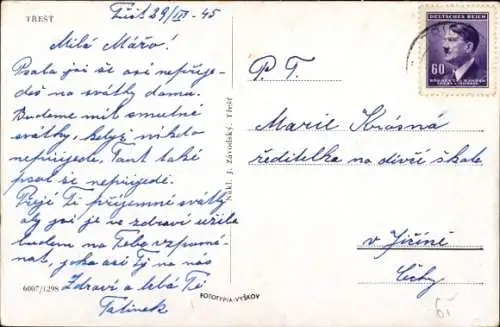 TŘEŠŤ
Třešť 29/III - 45
Milá Mářo!
Psala jsi že asi nepřije-
deš na svátky domů.
Budeme mít smutné
svátky, když nikdo
nepřijede. Tant také
psal že nepřijede.
Přeji Ti příjemné svátky
aby jsi je ve zdraví užila
budem na Tebe vzpomí-
nat, jako asi Ty na nás
Zdraví a líbá Tě
Tatínek
6007/1298
FOTOTYPIA-VYŠKOV
Nákl. J. Závodský, Třešť
DEUTSCHES REICH
60
BÖHMEN UND MÄHREN
ČECHY A MORAVA
P. T.
Marie Krásná
ředitelka na dívčí škole
v Jičíně
Čechy